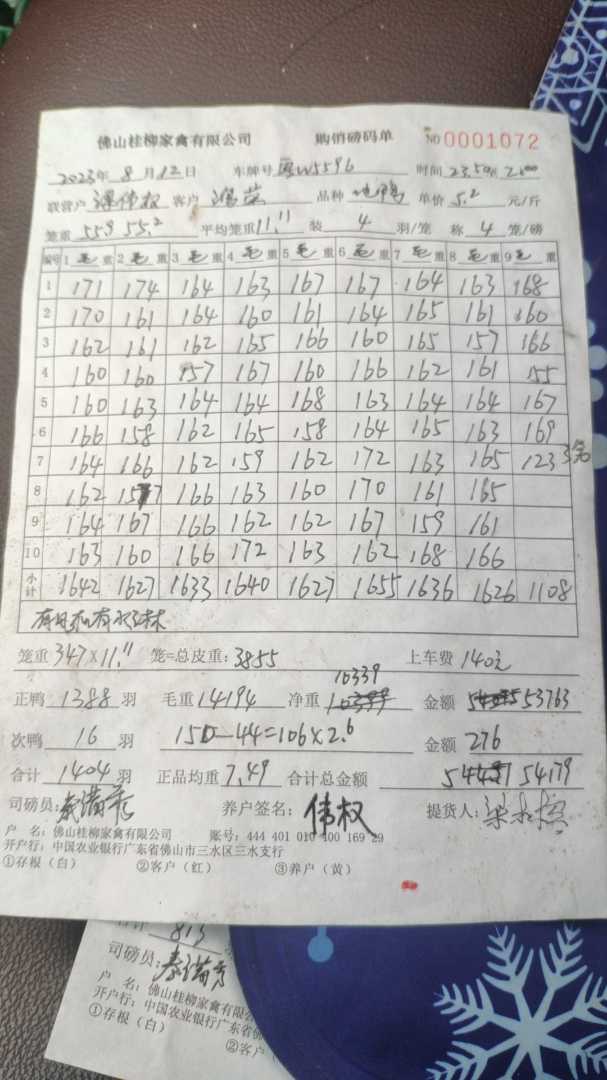 佛山桂柳家禽有限公司 购销磅码单 NO 0001072
2023年 8 月 12日 车牌号 粤W5596 时间 23.50
联营户 谭伟权 客户 鸿荣 品种 单价 5.2 元/斤
笼重 559 55.2 平均笼重 11.11 装 4 羽/笼 称 4 笼/磅
编号 1 毛 重 2 毛 重 3 毛 重 4 毛 重 5 毛 重 6 毛 重 7 毛 重 8 毛 重 9 毛 重
1 171 174 164 163 167 167 164 163 168
2 170 161 164 160 161 164 165 161 160
3 162 161 162 165 166 160 165 157 166
4 160 160 157 167 160 166 162 161 155
5 160 163 164 164 168 163 164 164 167
6 166 158 162 165 158 164 165 163 169
7 164 166 162 159 162 172 163 165 123 3笼
8 162 157 166 163 160 170 161 165
9 164 167 166 162 162 167 159 161
10 163 160 166 172 163 162 168 166
小计 1642 1627 1633 1640 1627 1655 1636 1626 1108
笼重 347×11.11 笼=总皮重: 3855 上车费 140元
正鸭 1388 羽 毛重 14194 净重 10339 金额 53763
次鸭 16 羽 150-44=106×2.6 金额 276
合计 1404 羽 正品均重 7.49 合计总金额 54179
司磅员: 养户签名: 伟权 提货人:
户 名: 佛山桂柳家禽有限公司 账号: 444 401 010 400 169 29
开户行: 中国农业银行广东省佛山市三水区三水支行
①存根(白) ②客户(红) ③养户(黄)
合计 813
司磅员:
户 名: 佛山桂柳家禽有限
开户行: 中国农业银行广东省佛
①存根(白) ②客户(